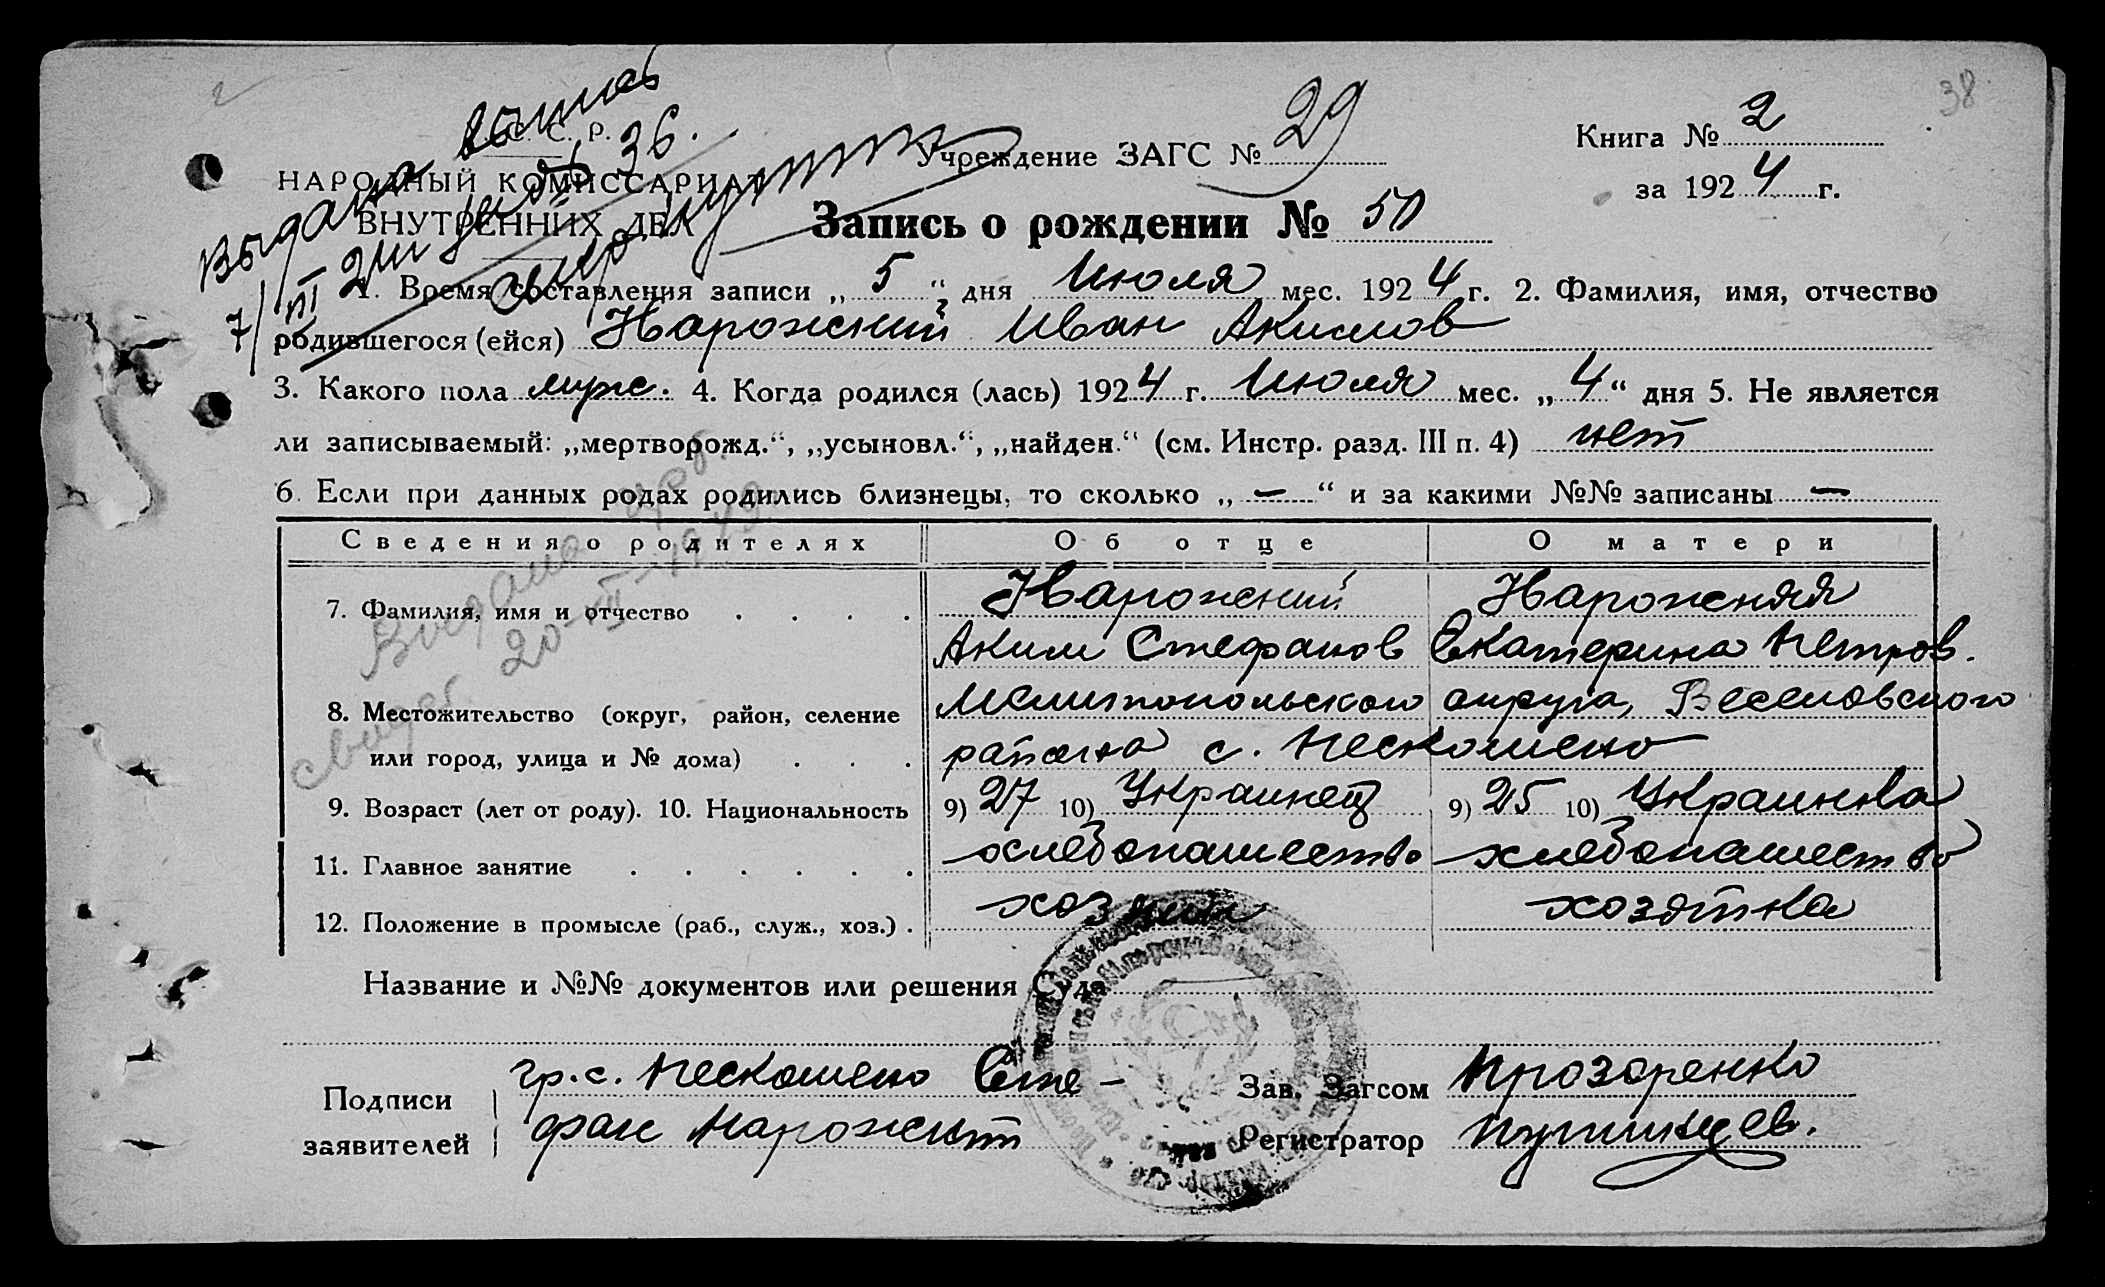 38
С. С. Р.
НАРОДНЫЙ КОМИССАРИАТ
ВНУТРЕННИХ ДЕЛ
Выдана выпись
7/III 36.
Учреждение ЗАГС № 29
Книга № 2
за 1924 г.
Запись о рождении № 50
1. Время составления записи „ 5 “ дня Июля мес. 1924 г. 2. Фамилия, имя, отчество
родившегося (ейся) Нарожский Иван Акимов
3. Какого пола муж. 4. Когда родился (лась) 1924 г. Июля мес. „ 4 “ дня 5. Не является
ли записываемый: „мертворожд.“, „усыновл.“, „найден.“ (см. Инстр. разд. III п. 4) нет
6. Если при данных родах родились близнецы, то сколько „ — “ и за какими №№ записаны —
Сведения о родителях Об отце О матери
7. Фамилия, имя и отчество . . . . Нарожский Нарожняя
Аким Стефанов Екатерина Петров.
8. Местожительство (округ, район, селение Мелитопольского округа, Веселовского
или город, улица и № дома) . . . района с. Пескошено
9. Возраст (лет от роду). 10. Национальность 9) 27 10) Украинец 9) 25 10) Украинка
11. Главное занятие . . . . . . хлебопашество хлебопашество
12. Положение в промысле (раб., служ., хоз.) . хозяин хозяйка
Выдано
свидет. 20-III-
Название и №№ документов или решения Суда
Подписи
заявителей
гр. с. Пескошено Сте-
фан Нарожский
Зав. Загсом Прозоренко
Регистратор